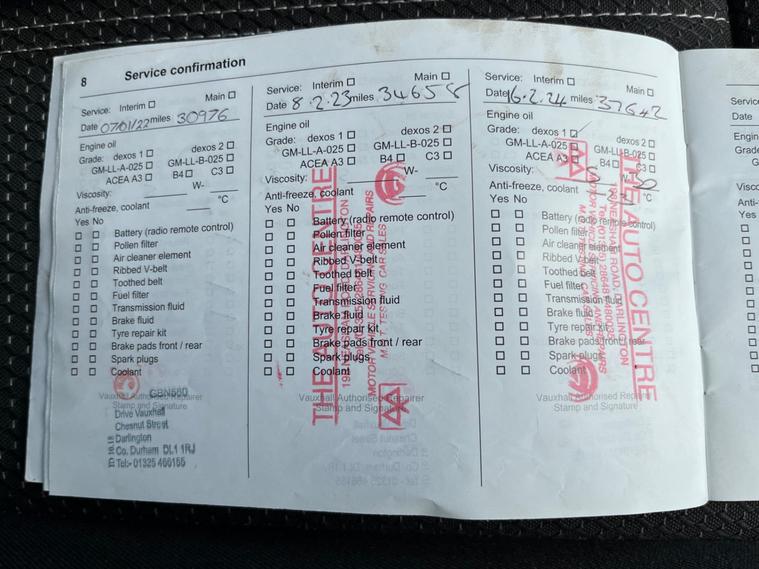 8 Service confirmation
Service: Interim Main
Date 07/01/22 miles 30976
Engine oil
Grade: dexos 1 dexos 2
GM-LL-A-025 GM-LL-B-025
ACEA A3 B4 C3
Viscosity: W-
Anti-freeze, coolant °C
Yes No
Battery (radio remote control)
Pollen filter
Air cleaner element
Ribbed V-belt
Toothed belt
Fuel filter
Transmission fluid
Brake fluid
Tyre repair kit
Brake pads front / rear
Spark plugs
Coolant
GBN560
Vauxhall Authorised Repairer
Stamp and Signature
Drive Vauxhall
Chesnut Street
Darlington
Co. Durham DL1 1RJ
Tel:- 01325 466155
Service: Interim Main
Date 8.2.23 miles 34658
Engine oil
Grade: dexos 1 dexos 2
GM-LL-A-025 GM-LL-B-025
ACEA A3 B4 C3
Viscosity: W-
Anti-freeze, coolant °C
Yes No
Battery (radio remote control)
Pollen filter
Air cleaner element
Ribbed V-belt
Toothed belt
Fuel filter
Transmission fluid
Brake fluid
Tyre repair kit
Brake pads front / rear
Spark plugs
Coolant
Vauxhall Authorised Repairer
Stamp and Signature
THE AUTO CENTRE
MOTOR VEHICLE SERVICING AND REPAIRS
M.O.T TESTING CAR SALES
AA
Service: Interim Main
Date 16.2.24 miles 37642
Engine oil
Grade: dexos 1 dexos 2
GM-LL-A-025 GM-LL-B-025
ACEA A3 B4 C3
Viscosity: W-
Anti-freeze, coolant °C
Yes No
Battery (radio remote control)
Pollen filter
Air cleaner element
Ribbed V-belt
Toothed belt
Fuel filter
Transmission fluid
Brake fluid
Tyre repair kit
Brake pads front / rear
Spark plugs
Coolant
Vauxhall Authorised Repairer
Stamp and Signature
AA
THE AUTO CENTRE
ROAD, DARLINGTON
MOTOR VEHICLE SERVICING AND REPAIRS